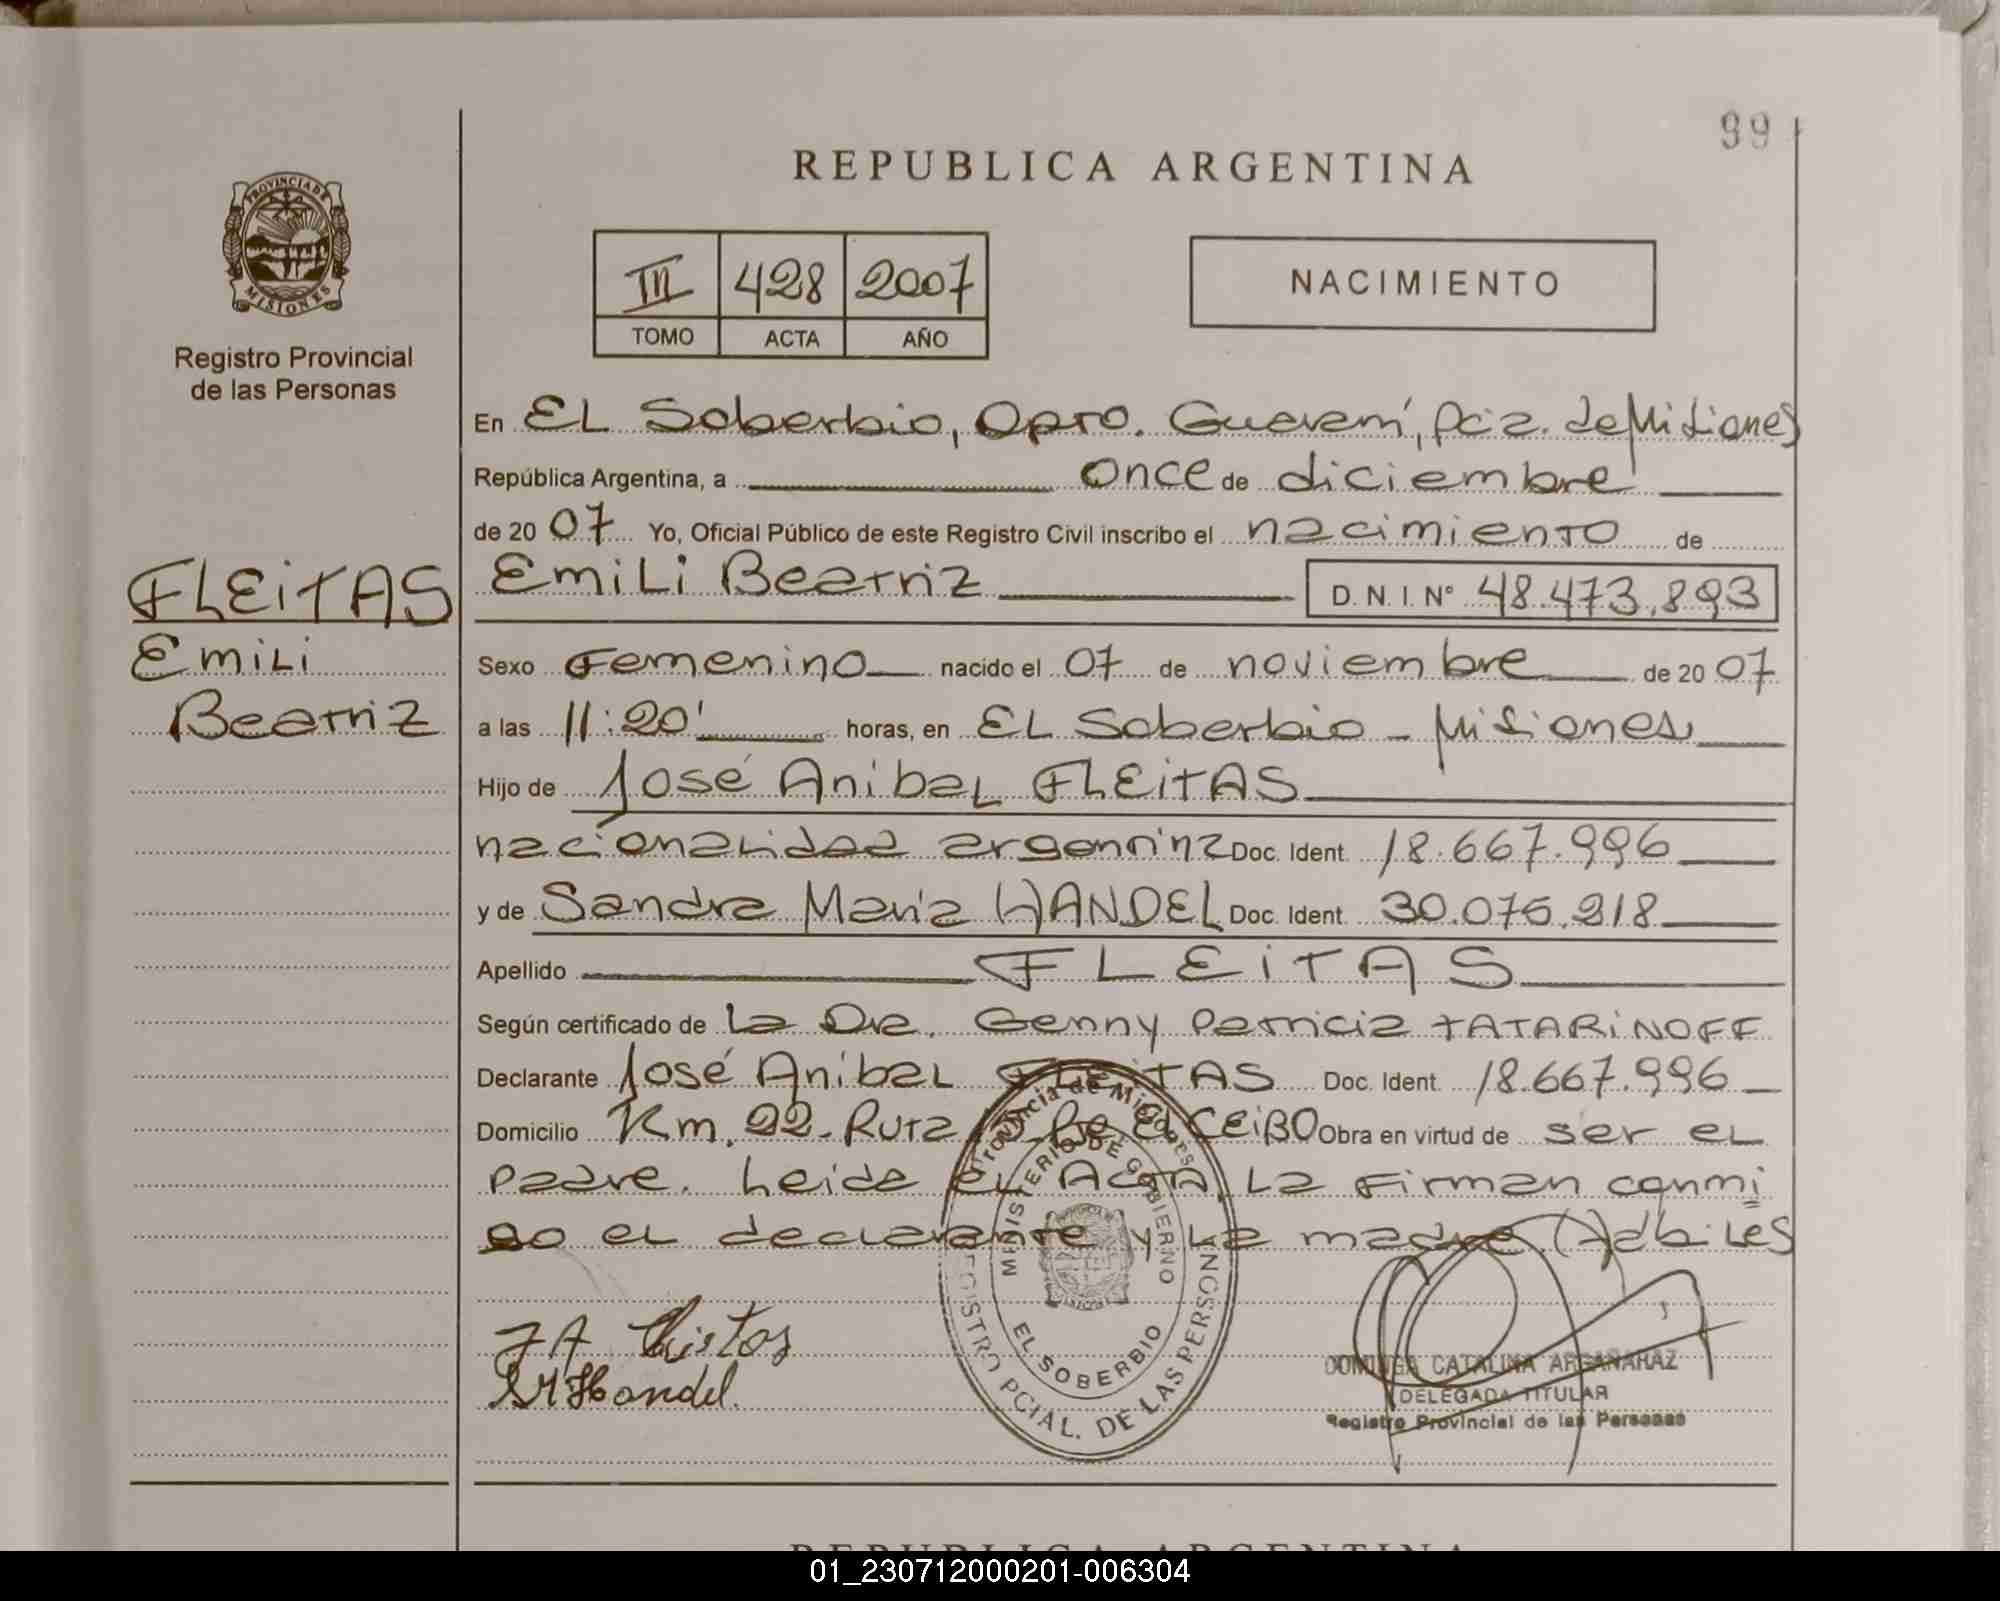 99
REPUBLICA ARGENTINA
PROVINCIA DE
MISIONES
Registro Provincial
de las Personas
III 428 2007
TOMO ACTA AÑO
NACIMIENTO
En EL Soberbio, Dpto. Guaraní, Pcia. de Misiones
República Argentina, a once de diciembre
de 20 07 Yo, Oficial Público de este Registro Civil inscribo el nacimiento de
FLEITAS
Emili
Beatriz
Emili Beatriz D.N.I. N° 48.473.893
Sexo Femenino nacido el 07 de noviembre de 20 07
a las 11:20' horas, en EL Soberbio - Misiones
Hijo de José Anibal FLEITAS
nacionalidad argentina Doc. Ident. 18.667.996
y de Sandra Maria HANDEL Doc. Ident. 30.075.218
Apellido FLEITAS
Según certificado de La Dra. Genny Patricia TATARINOFF
Declarante José Anibal FLEITAS Doc. Ident. 18.667.996
Domicilio Km. 22 - Ruta EL CEIBO Obra en virtud de ser el
padre. Leida el ACTA, La Firman conmi
go el declarante y La madre.
Provincia de Misiones
MINISTERIO DE GOBIERNO
EL SOBERBIO
REGISTRO PCIAL. DE LAS PERSONAS
SM Handel.
DOMINGA CATALINA ARGAÑARAZ
DELEGADA TITULAR
Registro Provincial de las Personas
REPUBLICA ARGENTINA
01_230712000201-006304